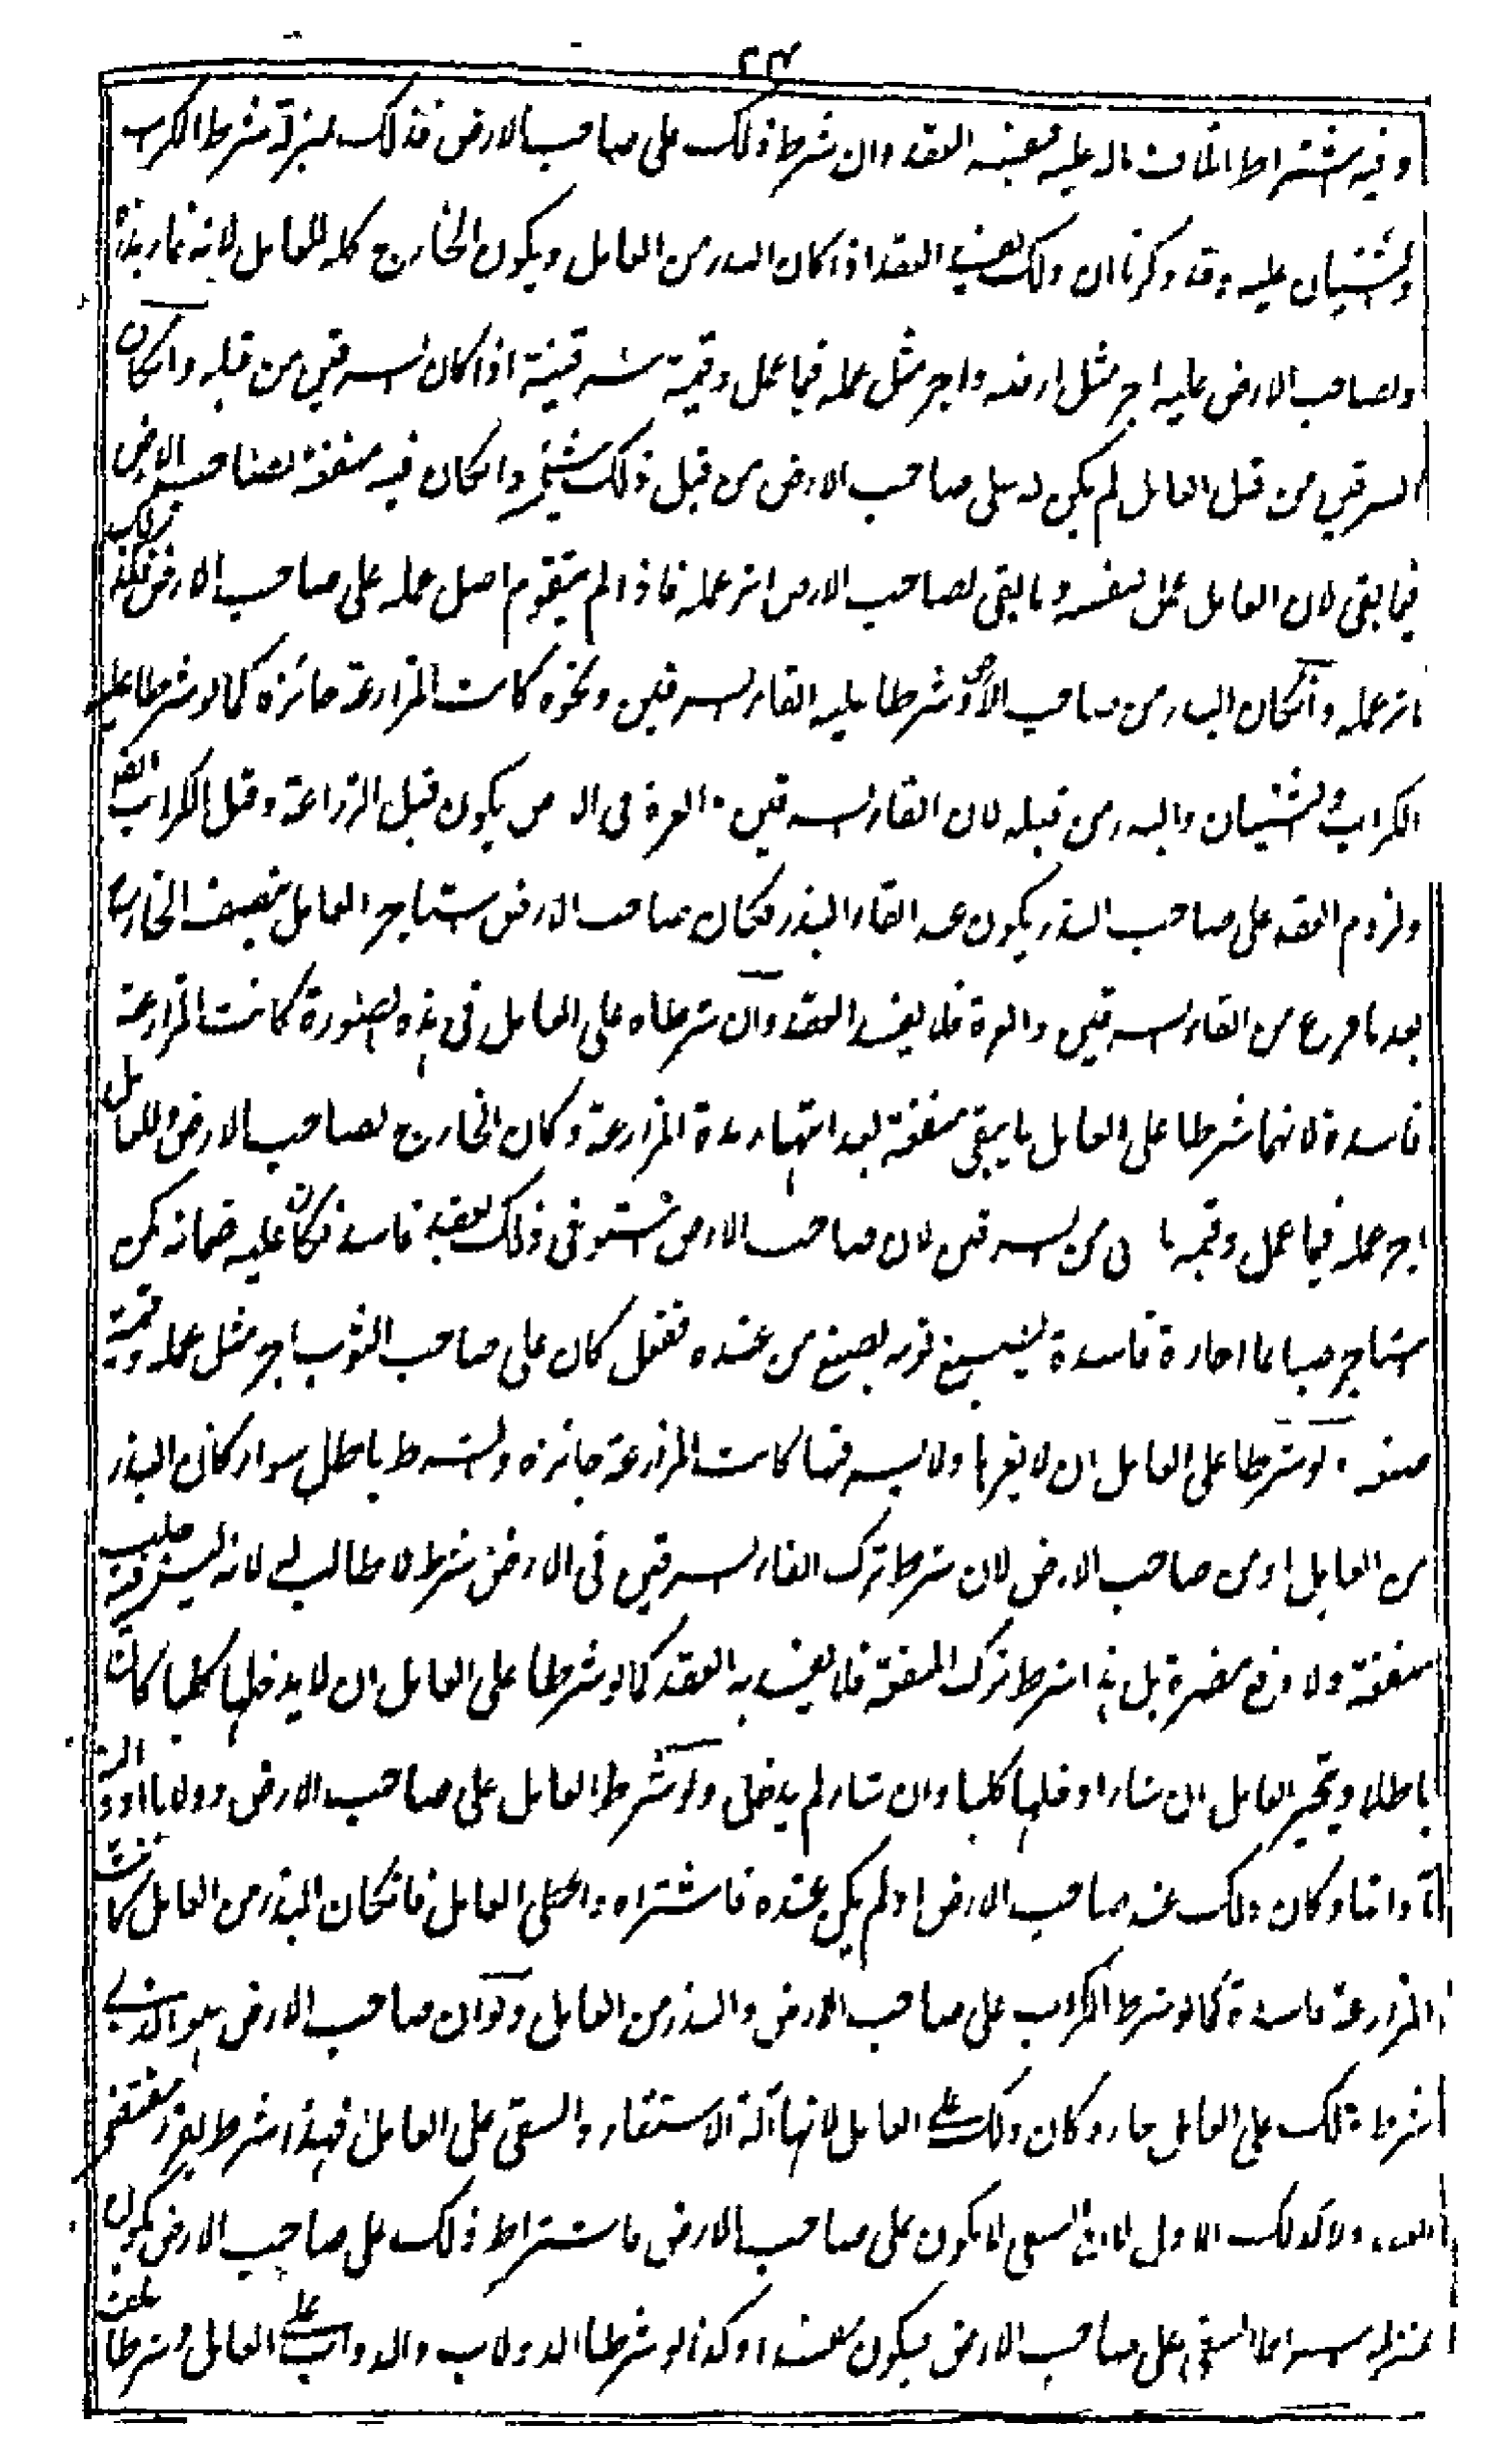 ٢٣
وفيه اشتراط اتلاف مال عليه فيفسد العقد وان شرط ذلك على صاحب الارض فذلك بمنزلة شرط الكراب
والثنيان عليه وقد ذكرنا ان ذلك يفسد العقد اذا كان البذر من العامل ويكون الخارج كله للعامل لانه نماء بذره
ولصاحب الارض عليه اجر مثل ارضه واجر مثل عمله فيما عمل وقيمة سرقينه اذا كان السرقين من قبله وانكان
السرقين من قبل العامل لم يكن له على صاحب الارض من قبل ذلك شيئ وانكان فيه منفعة لصاحب الارض
فيما بقى لان العامل عمل لنفسه وما بقى لصاحب الارض اثر عمله فاذا لم يتقوم اصل عمله على صاحب الارض فكذلك
اثر عمله وانكان البذر من صاحب الارض وشرطا عليه القاء السرقين ونحوه كانت المزارعة جائزة كما لو شرطا عليه
الكراب والثنيان والبذر من قبله لان القاء السرقين والعرة فى الارض يكون قبل الزراعة وقبل الكراب
ولزوم العقد على صاحب البذر يكون عند القاء البذر فكان صاحب الارض استاجر العامل بنصف الخارج
بعد ما فرغ من القاء السرقين والعرة فلا يفسد العقد وان شرطاه على العامل فى هذه الصورة كانت المزارعة
فاسدة لانهما شرطا على العامل ما يبقى منفعته بعد انتهاء مدة المزارعة وكان الخارج لصاحب الارض وللعامل
اجر عمله فيما عمل وقيمة ما من السرقين لان صاحب الارض استوفى ذلك بعقد فاسد فكان عليه ضمانه كمن
استاجر صباغا اجارة فاسدة ليصبغ ثوبه بصبغ من عنده ففعل كان على صاحب الثوب اجر مثل عمله وقيمة
صبغه ولو شرطا على العامل ان لا يعرها ولا يسرقنها كانت المزارعة جائزة والشرط باطل سواء كان البذر
من العامل او من صاحب الارض لان شرط ترك القاء السرقين فى الارض شرط لا طالب له لانه ليس فيه جلب
منفعة ولا دفع مضرة بل هذا شرط ترك المنفعة فلا يفسد به العقد كما لو شرطا على العامل ان لا يدخلها كلبا كان
باطلا ويخير العامل ان شاء ادخلها كلبا وان شاء لم يدخل ولو شرط العامل على صاحب الارض دولابا او
وكان ذلك عند صاحب الارض او لم يكن عنده فاشتراه واعطى العامل فانكان البذر من العامل كانت
المزارعة فاسدة كما لو شرط الكراب على صاحب الارض والبذر من العامل ولو ان صاحب الارض هو الذى
شرط ذلك على العامل جاز وكان ذلك على العامل لانها آلة الاستقاء والسقى على العامل فهذا شرط يقرر مقتضى
العقد ولا كذلك الاول لان السقى لا يكون على صاحب الارض فاشتراط ذلك على صاحب الارض يكون
بمنزلة اشتراط السقى على صاحب الارض فيكون مفسدا وكذا لو شرطا الدولاب والدواب على العامل وشرطا علف